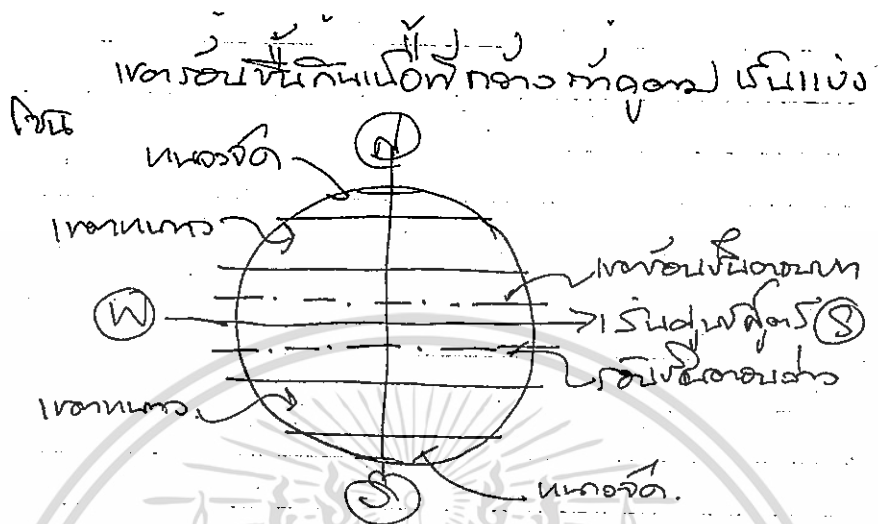 เขตร้อนชื้นกินเนื้อที่กว้าง ถ้าดูตาม เส้นแบ่ง
โซน
หนาวจัด
เขตหนาว
เขตร้อนชื้นตอนบน
W
เส้นศูนย์สูตร
ร้อนชื้นตอนล่าง
เขตหนาว
S
หนาวจัด.